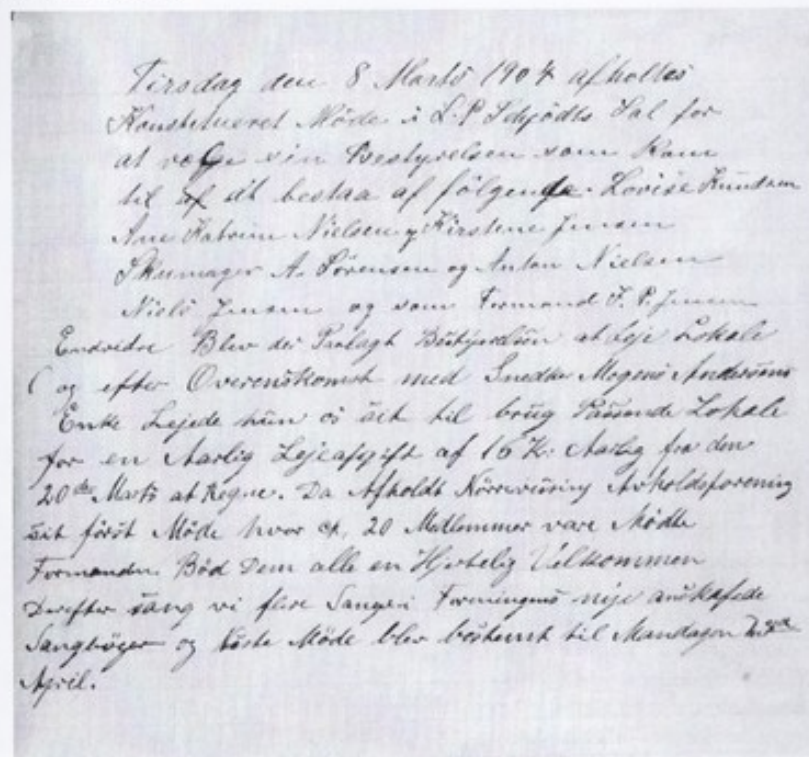 Tirsdag den 8 Marts 1904 afholtes
Konstitueret Møde i L. P. Schjødts Sal for
at vælge sin Bestyrelsen som kam
til at bestaa af følgende. Lovise Knudsen
Ane Katrine Nielsen og Kirstene Jensen
Skumager A. Sørensen og Anton Nielsen
Niels Jensen og som Formand J. P. Jensen
Endvidre Blev der Paalagt Bestyrelsen at Leje Lokale
og efter Overenskomst med Snedker Mogens Andersens
Enke Lejede hun os sit til brug Passende Lokale
for en Aarlig Lejeafgift af 16 Kr. Aarlig fra den
20de Marts at Regne. Da Afholdt Avholdsforening
sit først Møde hvor ca. 20 Medlemmer vare Mødte
Formanden Bød Dem alle en Hjertelig Velkommen
Derefter sang vi flere Sange i Foreningens nye anskafede
Sangbøger og Møde blev bestemt til Mandagen
April.